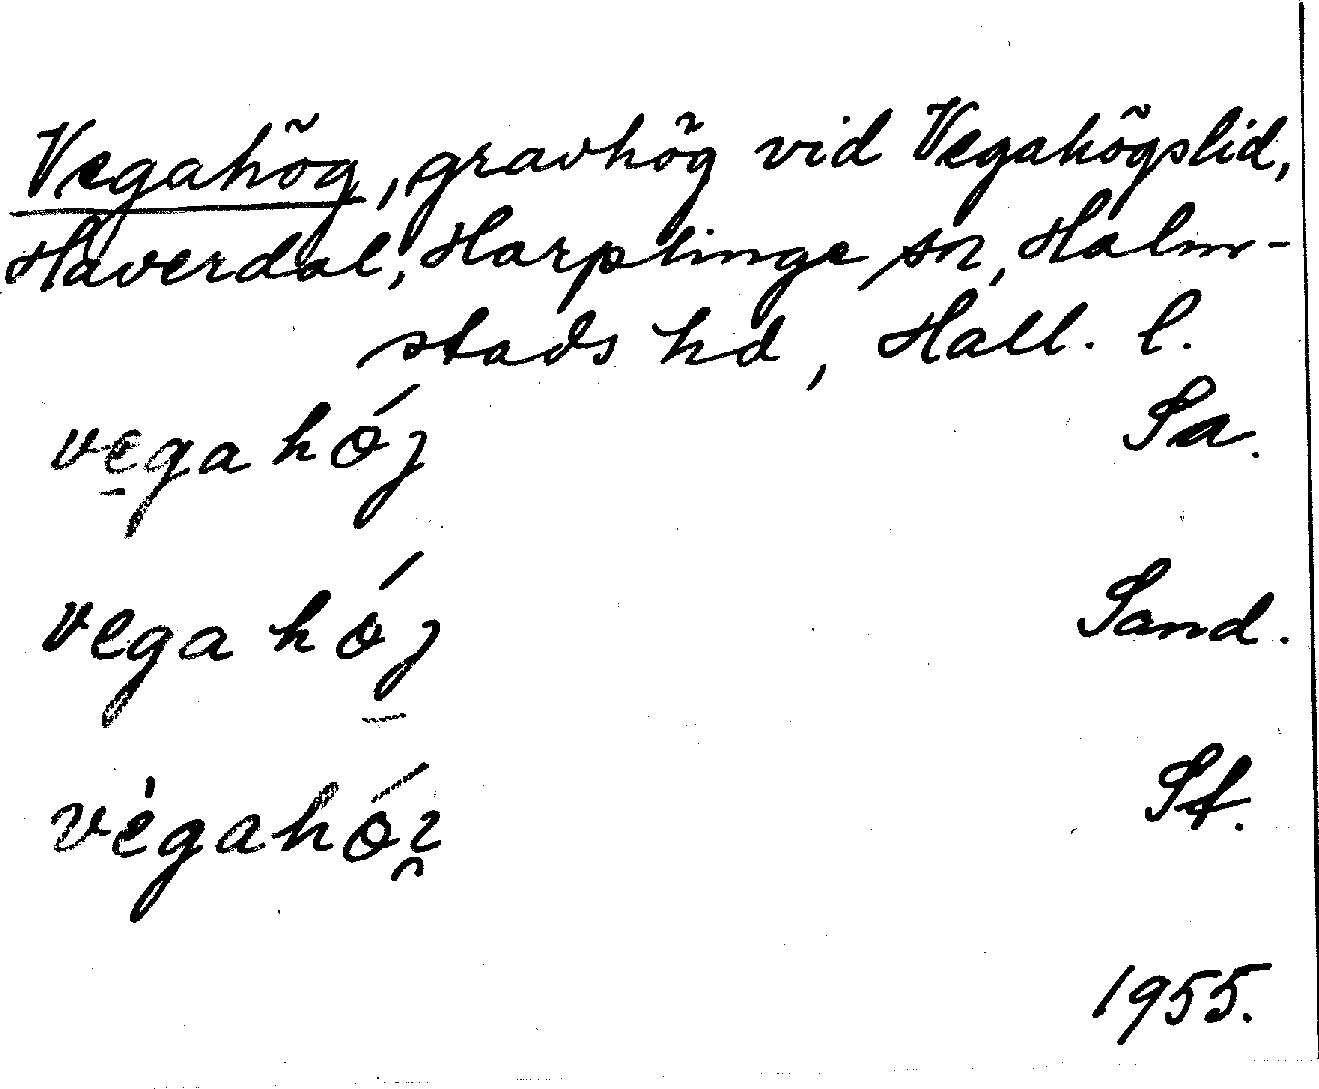 Vegahög, gravhög vid Vegahögslid,
Haverdal, Harplinge sn, Halm-
stads hd, Hall. l.
vega hǿj Sa.
vega hǿj Sand.
vègahǿı̯ St.
1955.